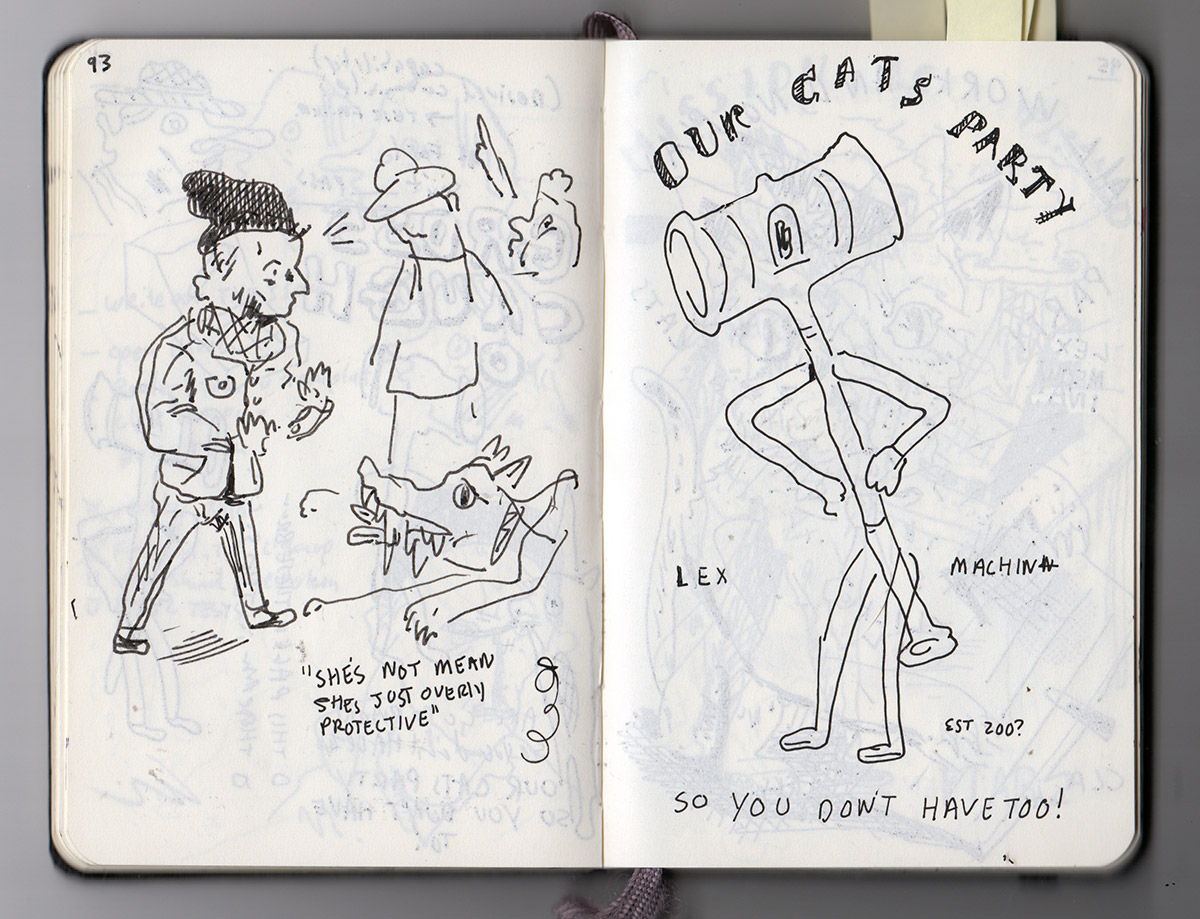 93
"SHE'S NOT MEAN
SHES JUST OVERLY
PROTECTIVE"
OUR CATS PARTY
LEX MACHINA
EST 200?
SO YOU DON'T HAVE TOO!